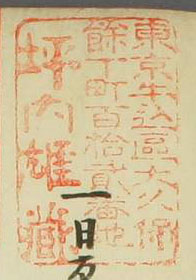 東京牛込區大久保
餘丁町百拾貳番地
坪内雄藏
一日